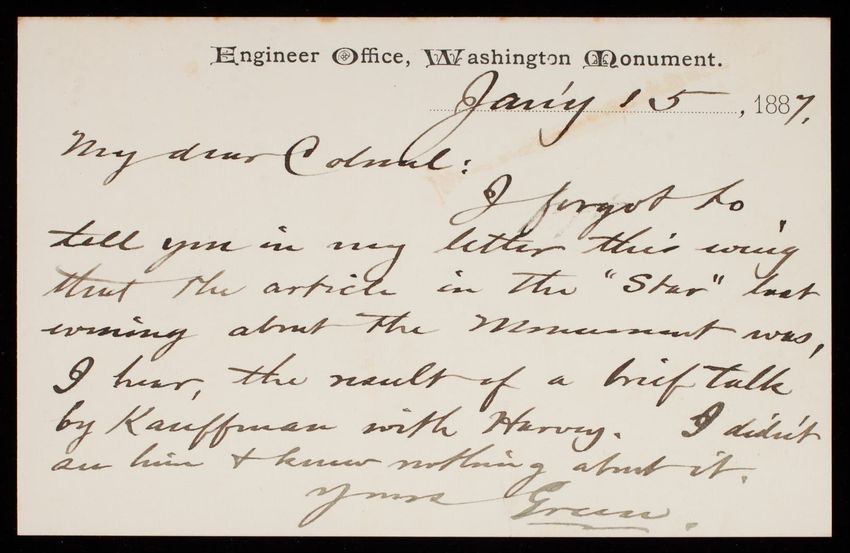 Engineer Office, Washington Monument.
Jan'y 15, 1887.
My dear Colonel:
I forgot to
tell you in my letter this ev'ing
that the article in the "Star" last
evening about the Monument was,
I hear, the result of a brief talk
by Kauffman with Harvey. I didn't
see him & knew nothing about it.
Yours Green.